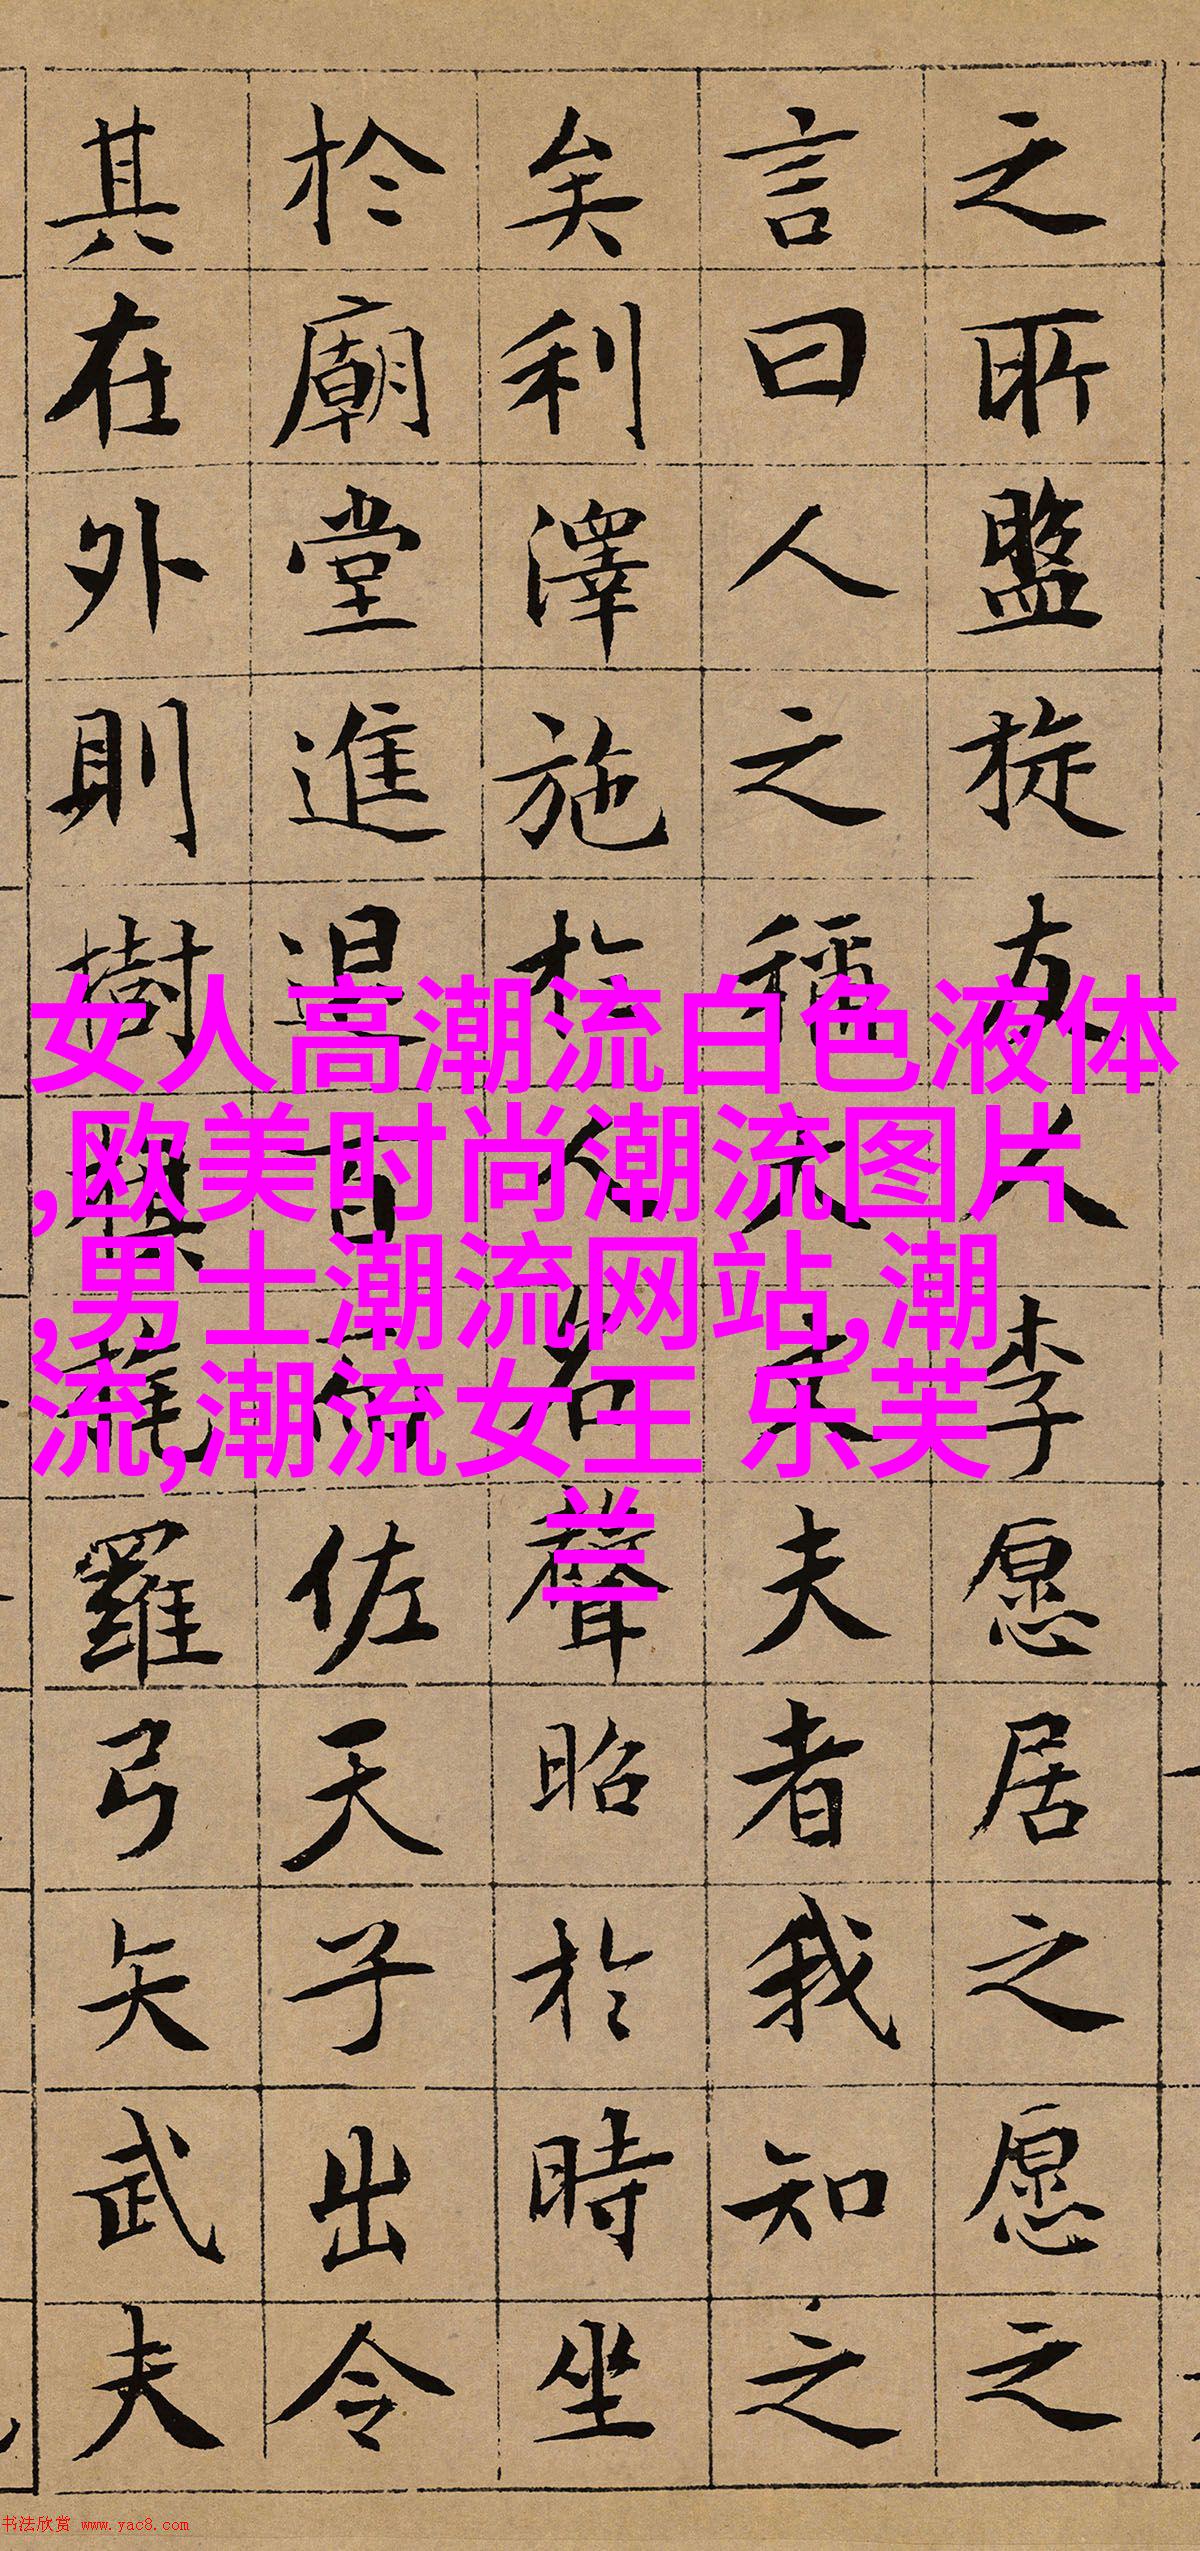 之所盤旋友人李愿居之愿之
言曰人之稱大丈夫者我知之
矣利澤施於人名聲昭於時坐
於廟堂進退百官佐天子出令
其在外則樹旗旄羅弓矢武夫
女人高潮流白色液体
,欧美时尚潮流图片
,男士潮流网站,潮
流,潮流女王 乐芙
兰
书法欣赏 www.yac8.com